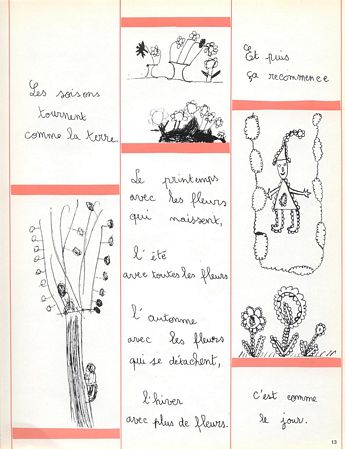 Les saisons
tournent
comme la terre.
Le printemps
avec les fleurs
qui naissent,
l'été
avec toutes les fleurs
l'automne
avec les fleurs
qui se détachent,
l'hiver
avec plus de fleurs.
Et puis
ça recommence
c'est comme
le jour.
13